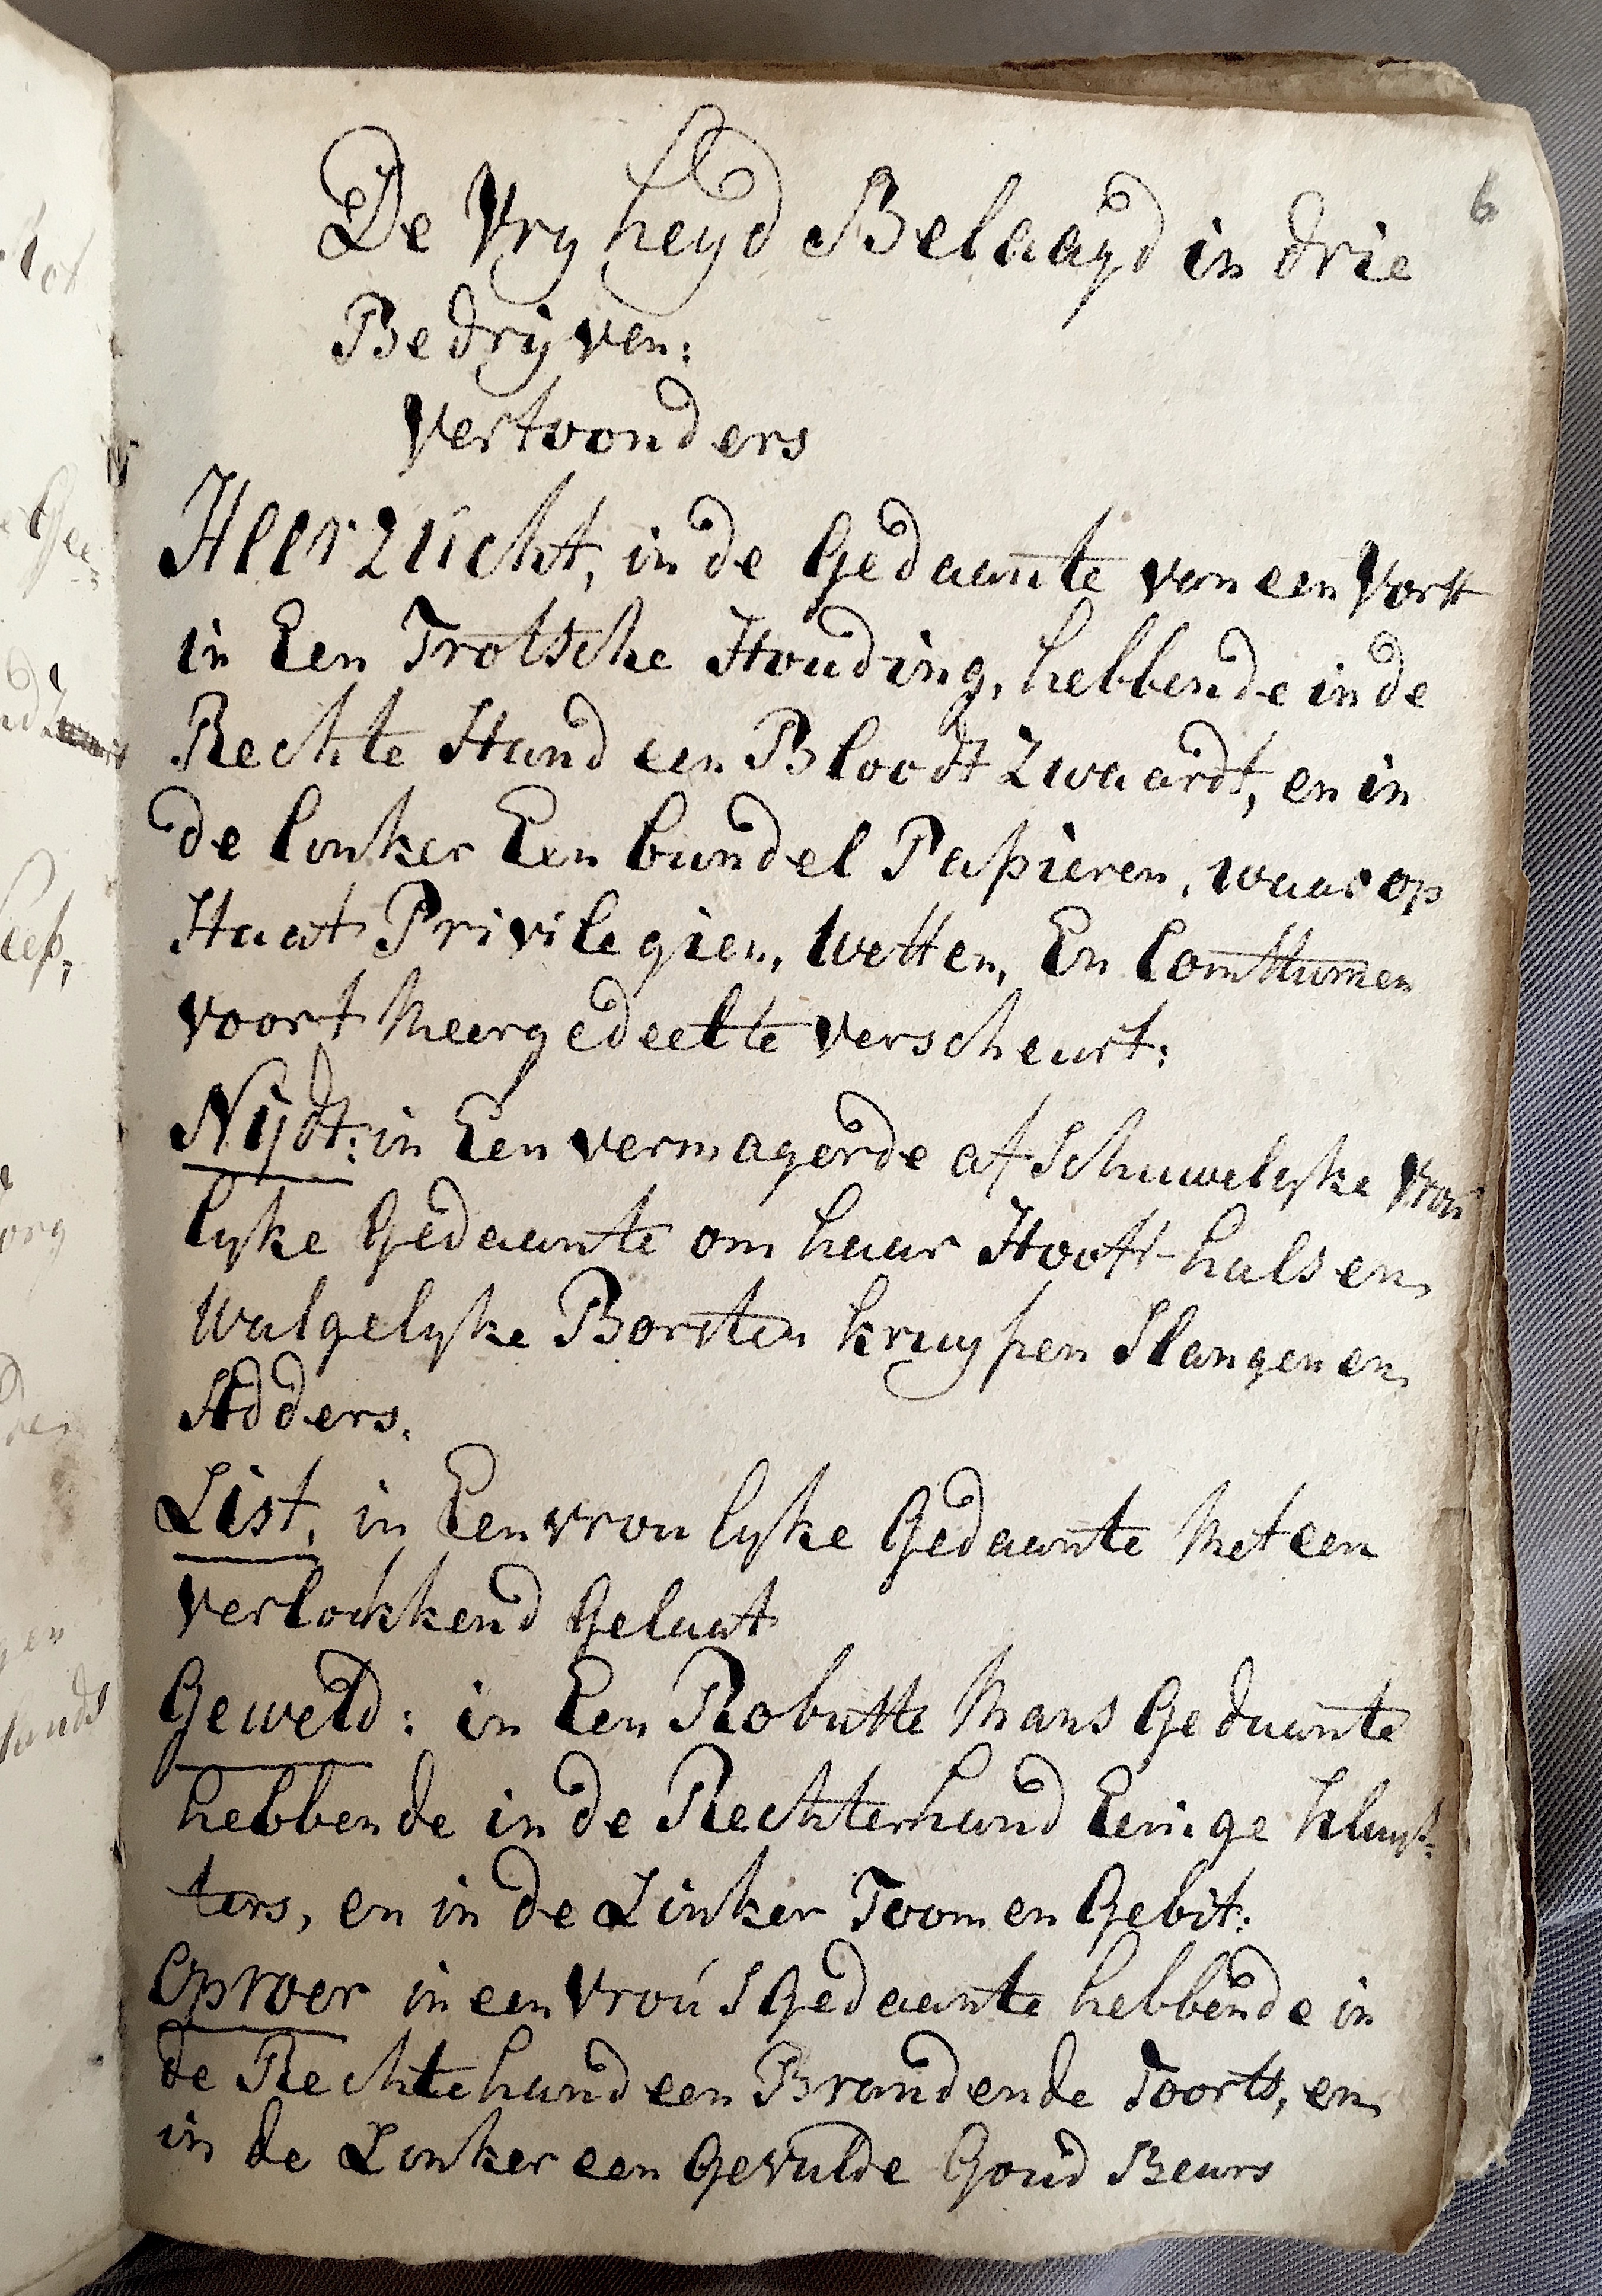 6
De Vryheyd Belaagd in drie
Bedrijven:
Vertoonders
Heerzucht, in de Gedaante van een Vorst
in Een Trotsche Houding, hebbende in de
Rechte Hand een Bloodt Zwaardt, en in
de linker Een bundel Papieren, waar op
Staat Privilegien, Wetten, En Costtumen
voor t Meergedeelte verscheurt:
Nijdt: in Een vermagerde afschuwelyke Vrou
lyke Gedaante om haar Hooft hals en
Walgelyke Borsten kruypen Slangen en
Adders.
List, in Een vroulyke Gedaante Met een
verlokkend Gelaat
Geweld: in Een Robuste Mans Gedaante
hebbende in de Rechterhand Eenige kluys-
ters, en in de Linker Toom en Gebit:
Oproer in een Vroús Gedaante hebbende in
de Rechtehand een Brandende Toorts, en
in de Linker een Gevulde Goud Beurs